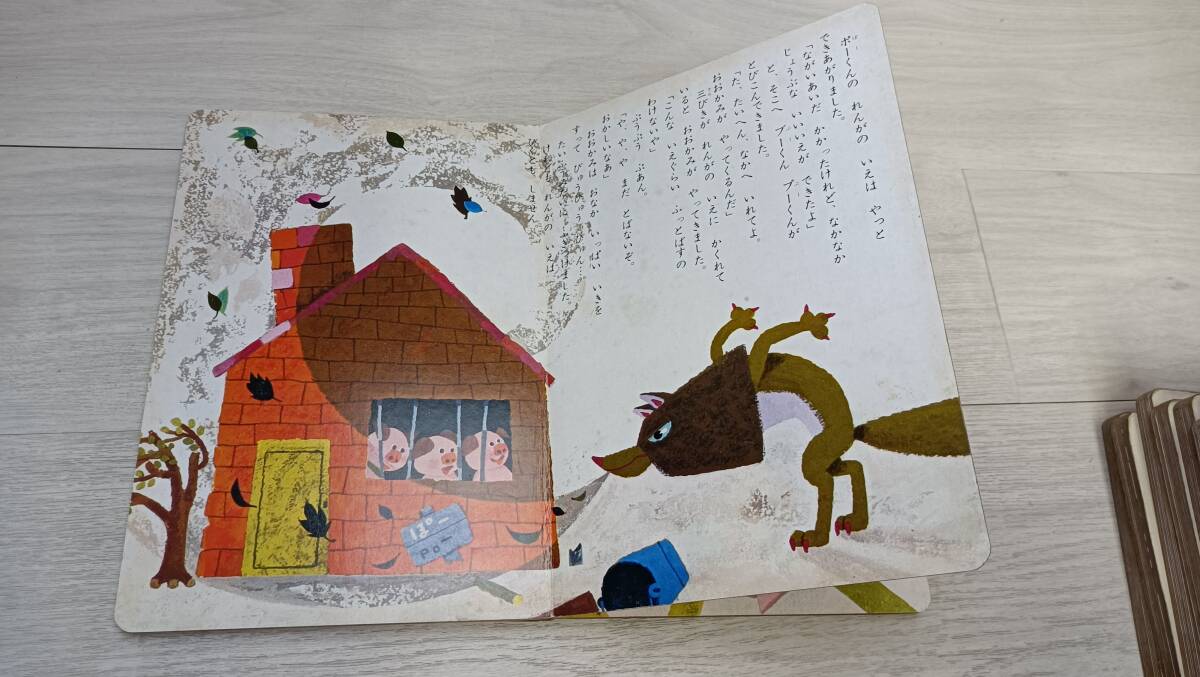 ポーくんの れんがの いえは やっと
できあがりました。
「ながいあいだ かかったけれど、なかなか
じょうぶな いいいえが できたよ」
と、そこへ プーくん ブーくんが
とびこんできました。
「た、たいへん、なかへ いれてよ。
おおかみが やってくるんだ」
三びきが れんがの いえに かくれて
いると おおかみが やってきました。
「こんな いえぐらい ふっとばすの
わけないや」
ぶうぶう ふあん。
「や、や、や まだ とばないぞ。
おかしいなあ」
おおかみは おなかいっぱい いきを
すって びゅうびゅうびゅん……
れんがの いえは
しません。
ぽー
Po-